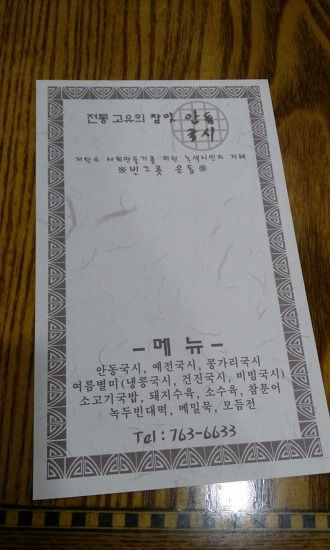 전통 고유의 참맛 안동
국시
저탄소 사회만들기를 위한 녹색시민의 지혜
※빈그릇 운동※
- 메 뉴 -
안동국시, 예전국시, 콩가리국시
여름별미(냉콩국시, 건진국시, 비빔국시)
소고기국밥, 돼지수육, 소수육, 참문어
녹두빈대떡, 메밀묵, 모듬전
Tel : 763-6633